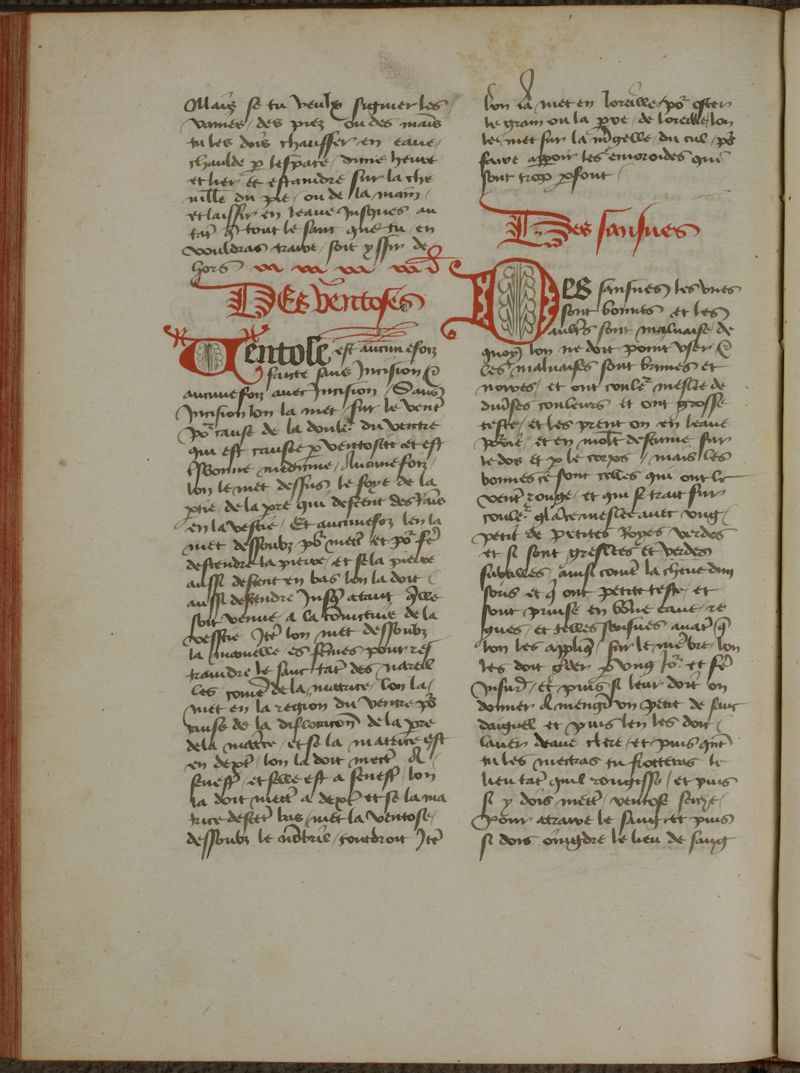 Mais se tu veulx signier les
vaines des piez ou des mains
tu les dois chauffer en eaue
chaulde p lespace dune heure
et lier et estaindre sur la che
ville du pie ou de la main
et laissir en leaue Jusques au
tat q tout le sanc que tu en
vouldras traire soit yssir de
hors
Des ventoses
Ventose est aucunesfoiz
faicte sans Incision et
aucunesfoiz avec Incision Sans
Incision lon la met sur le vent
por cause de la doule du ventre
qui est causee p ventosite et est
bonne medicine Aucunesfoiz
lon le met dessus le foye de la
ptie de la pre qui descent des Rais
en la vessie Et aucunesfoiz len la
met dessoubz por mett et por fe
descendre la pierre et se la pierre
aussi descent en bas lon la doit
aussi descendre Jusq atant qlle
soit venue a la de la
vessie Ite lon met dessoubz
la mamelle es femes pour res
traindre le sanc tat des nareil
les come de la matrice lon la
met en la region du ventre por
cause de la de la pre
de la matrice et se la matrice est
en dext lon la doit mectr a
senestr et selle est a senestr lon
la doit mectr a dext et se la ma
trice descet bas met la ventose
dessoubz le nobril tout droit Ite
lon la met en loreille por oster
le grain ou la pre de loreille lon
le met sur la du cul por
faire apparoir les emoroides qui
sont trop pfont
Des sansues
Des sansues les unes
sont bonnes et les
aultres sont malvaise de
quoy lon ne doit point user
Les malvaises sont brunes et
noires et ont coule meslee de
diverses couleurs et ont grosse
teste et les prent on en leaue
et en molt descume sur
le dos et p le corps mais les
bonnes ce sont celles qui ont le
vent rouge et qui se trait sur
coule glace meslee avec ung
petit de petites Royes verdes
et si sont greslles et verdes
come la cheue dun
soris et q ont petite teste et
sont prinse en bone eaue
et telles sensues avat q
lon les appliq sur le mebre lon
les doit gder p ung Jor et fe
Et puis si leur doit on
donner a mengir un petit de sanc
daignel et puis len les doit
laver deaue clere et puis qnt
tu les mectras tu frotteras le
lieu tat quil rougisse et puis
si y dois mett ventose seche
Pour atraire le sanc et puis
si dois oingdre le lieu de sang